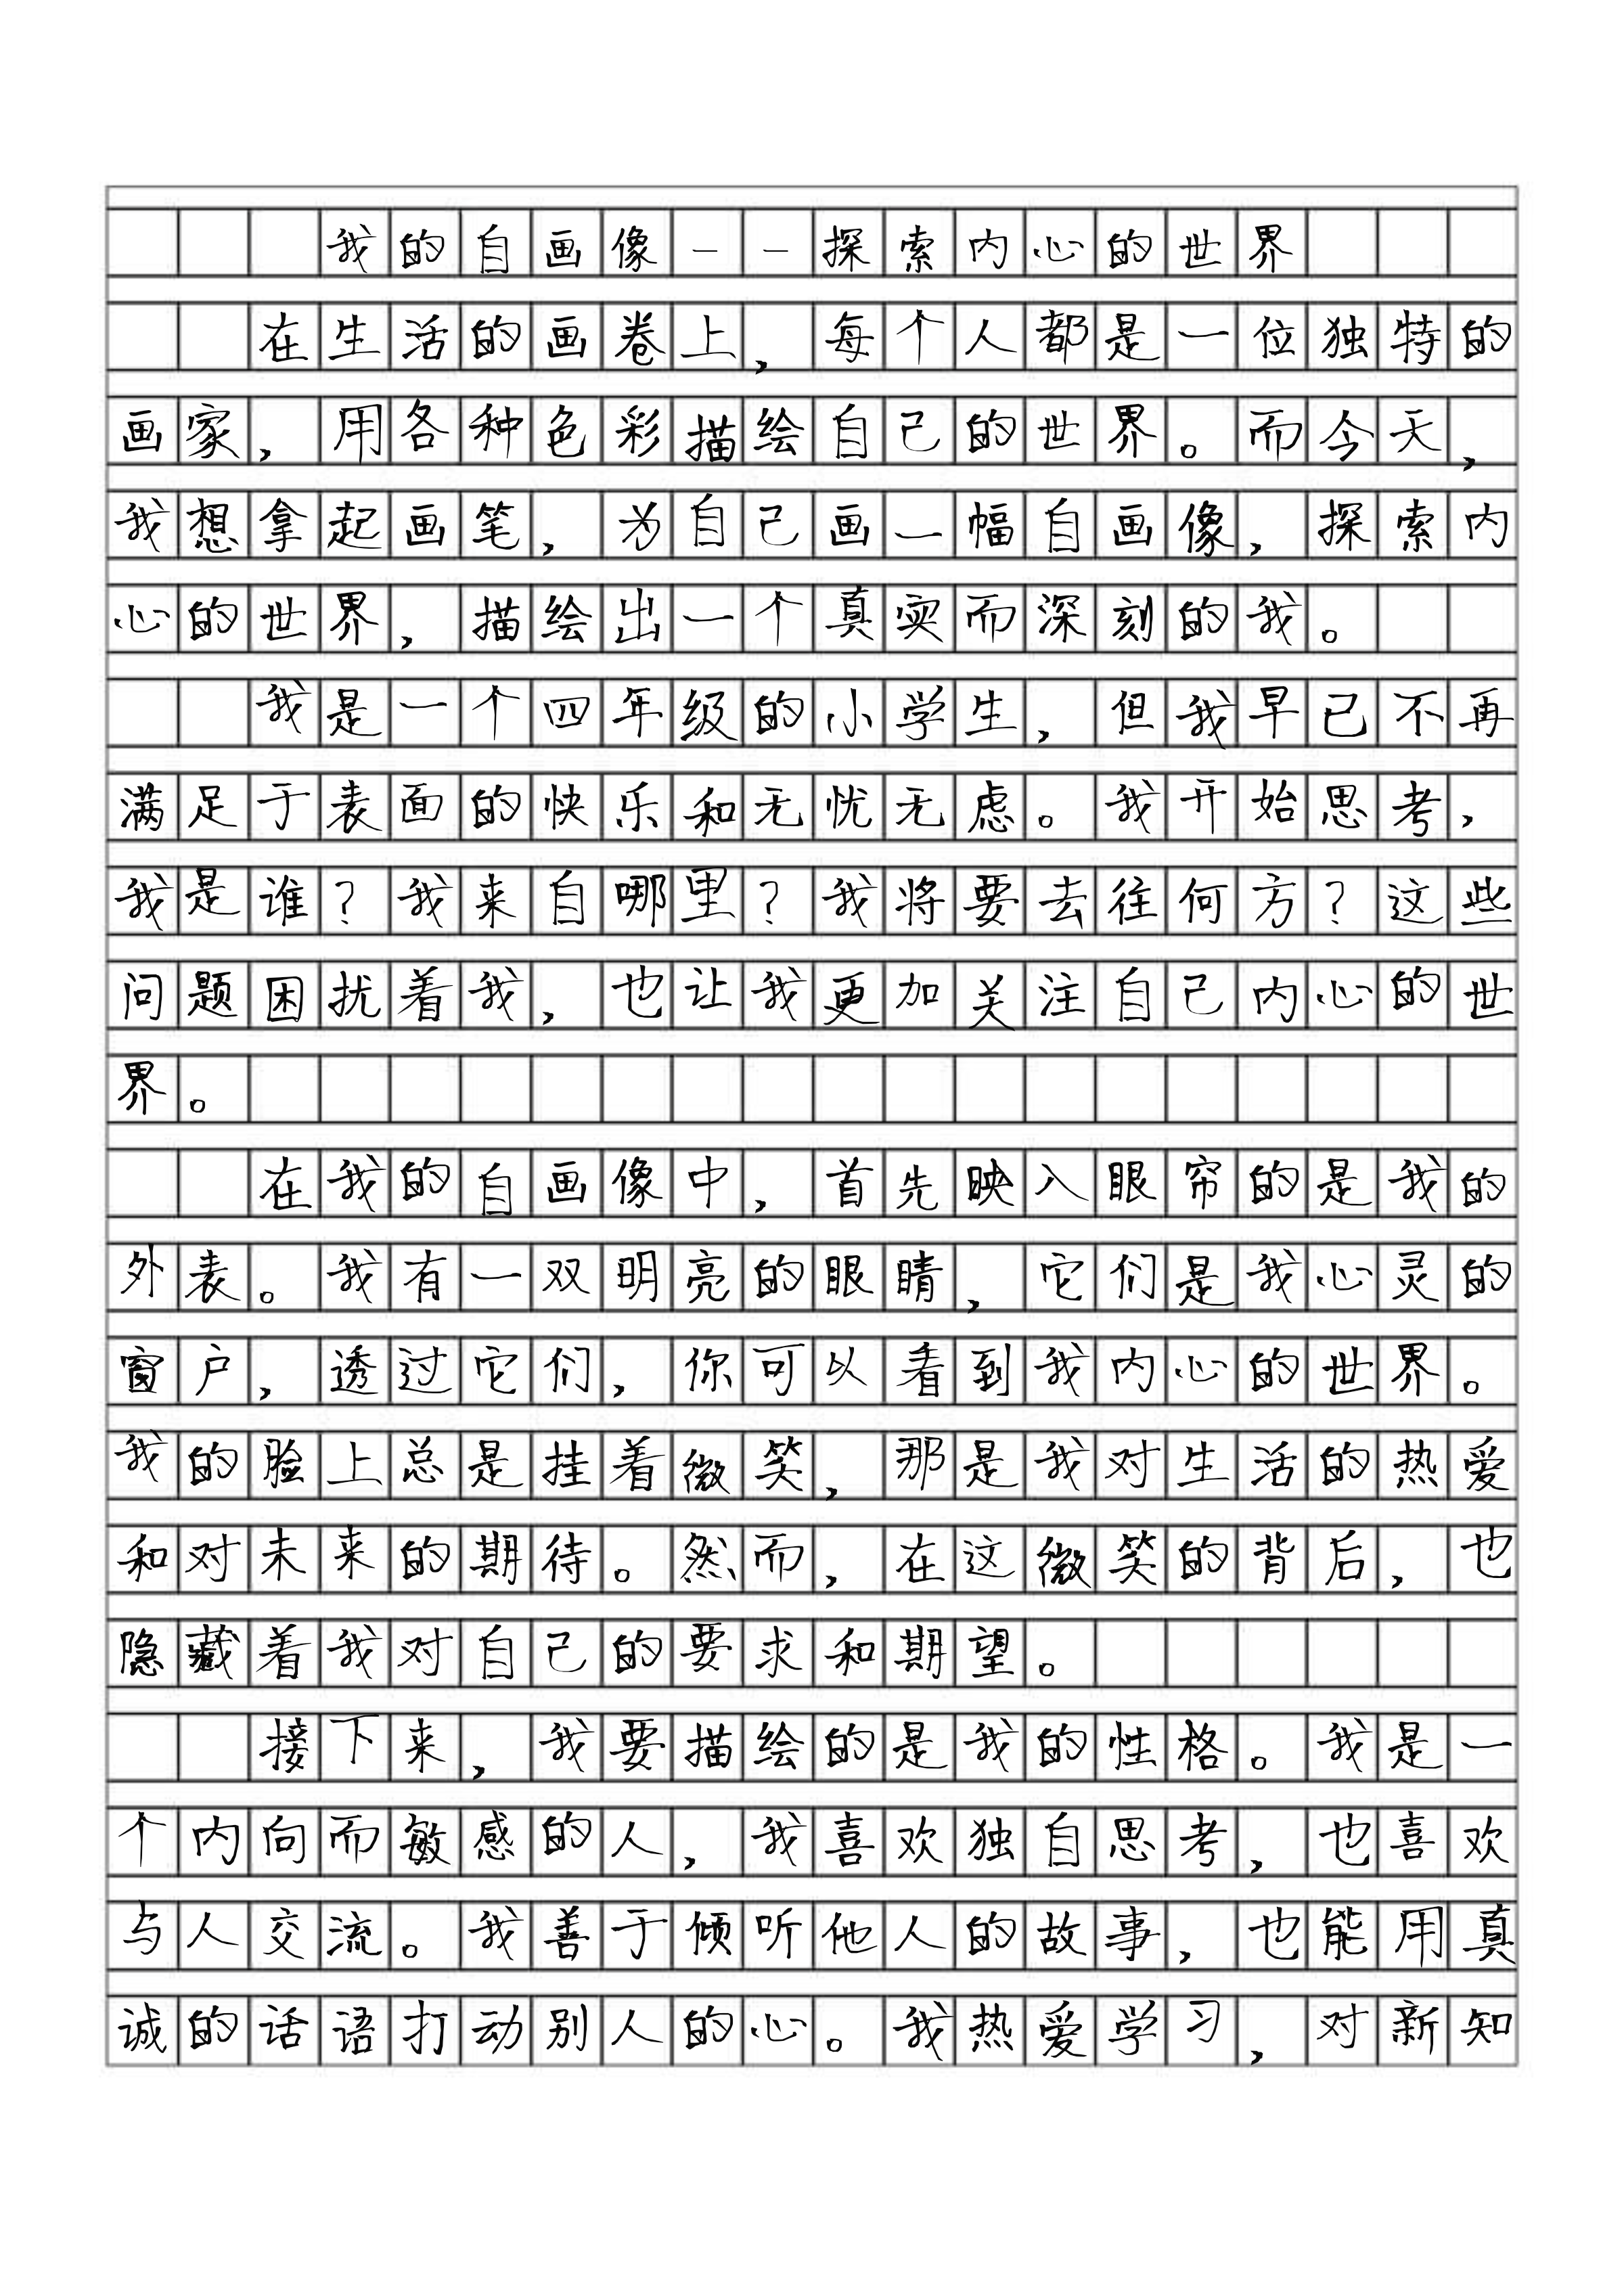 我的自画像--探索内心的世界
在生活的画卷上，每个人都是一位独特的
画家，用各种色彩描绘自己的世界。而今天，
我想拿起画笔，为自己画一幅自画像，探索内
心的世界，描绘出一个真实而深刻的我。
我是一个四年级的小学生，但我早已不再
满足于表面的快乐和无忧无虑。我开始思考，
我是谁？我来自哪里？我将要去往何方？这些
问题困扰着我，也让我更加关注自己内心的世
界。
在我的自画像中，首先映入眼帘的是我的
外表。我有一双明亮的眼睛，它们是我心灵的
窗户，透过它们，你可以看到我内心的世界。
我的脸上总是挂着微笑，那是我对生活的热爱
和对未来的期待。然而，在这微笑的背后，也
隐藏着我对自己的要求和期望。
接下来，我要描绘的是我的性格。我是一
个内向而敏感的人，我喜欢独自思考，也喜欢
与人交流。我善于倾听他人的故事，也能用真
诚的话语打动别人的心。我热爱学习，对新知